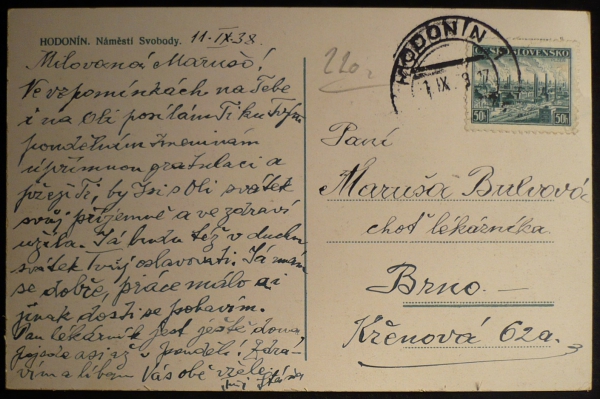 HODONÍN. Náměstí Svobody. 11-IX-38.
Milovaná Marušo!
Ve vzpomínkách na Tebe
i na Oli posílám Ti ku Tvým
pondělním jmeninám
upřímnou gratulaci a
přeji Ti, by jsi s Oli svátek
svůj příjemně a ve zdraví
užila. Já budu též v duchu
svátek Tvůj oslavovati. Já mám
se dobře, práce málo a i
jinak dosti se pobavím.
Pan lékárník jest ještě doma
pojede asi až v pondělí! Zdra-
vím a líbám Vás obě vřele
220,
HODONÍN
IX
ČESKOSLOVENSKO
50h 50h
Paní
Maruša Bulvová
choť lékárníka
Brno
Křenová 62a.